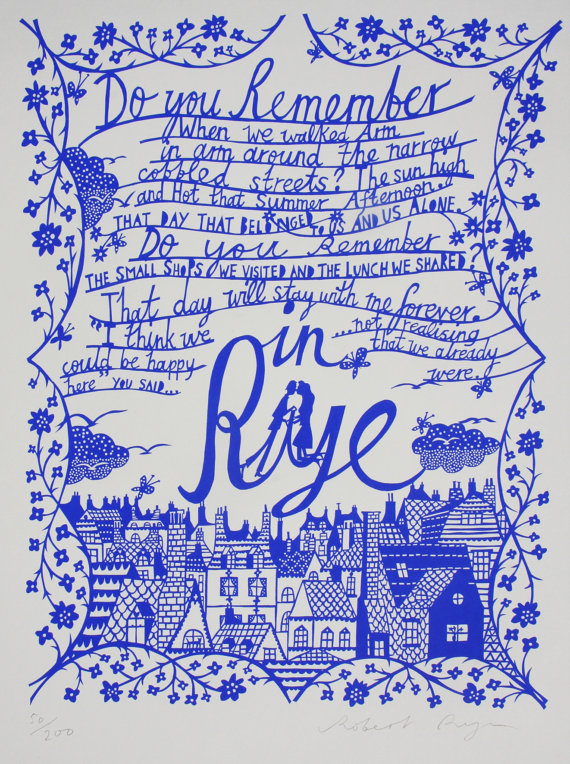 Do you Remember
When we walked Arm
in arm around the narrow
cobbled streets? The sun high
and Hot that Summer Afternoon.
THAT DAY THAT BELONGED TO US AND US ALONE.
Do you Remember
THE SMALL SHOPS WE VISITED AND THE LUNCH WE SHARED?
That day will stay with me forever.
"I think we
could be happy
here" YOU SAID...
...not realising
that we already
were.
in
Rye
50/200
Robert Ryan